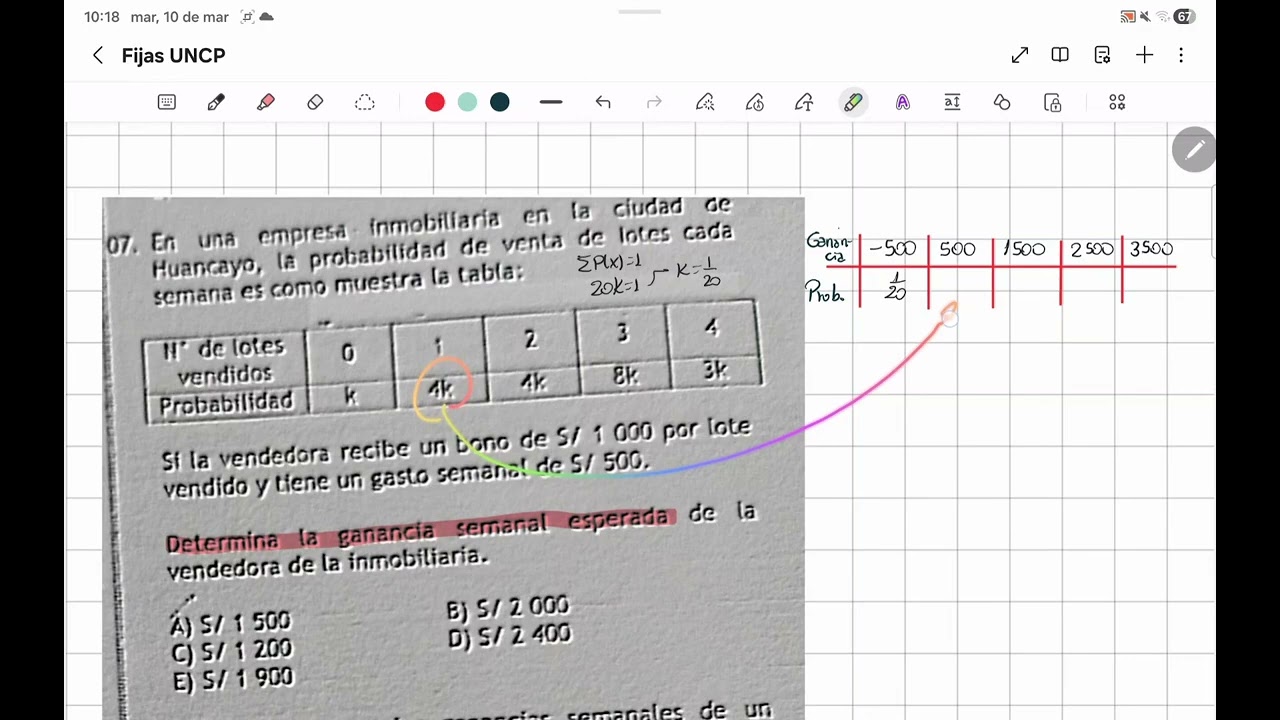 10:18 mar, 10 de mar
67
Fijas UNCP
07. En una empresa inmobiliaria en la ciudad de
Huancayo, la probabilidad de venta de lotes cada
semana es como muestra la tabla:
ΣP(x)=1
20K=1
K=1/20
N° de lotes vendidos 0 1 2 3 4
Probabilidad k 4k 4k 8k 3k
Si la vendedora recibe un bono de S/ 1 000 por lote
vendido y tiene un gasto semanal de S/ 500.
Determina la ganancia semanal esperada de la
vendedora de la inmobiliaria.
A) S/ 1 500
B) S/ 2 000
C) S/ 1 200
D) S/ 2 400
E) S/ 1 900
semanales de un
Ganan-
cia -500 500 1500 2500 3500
Prob. 1/20